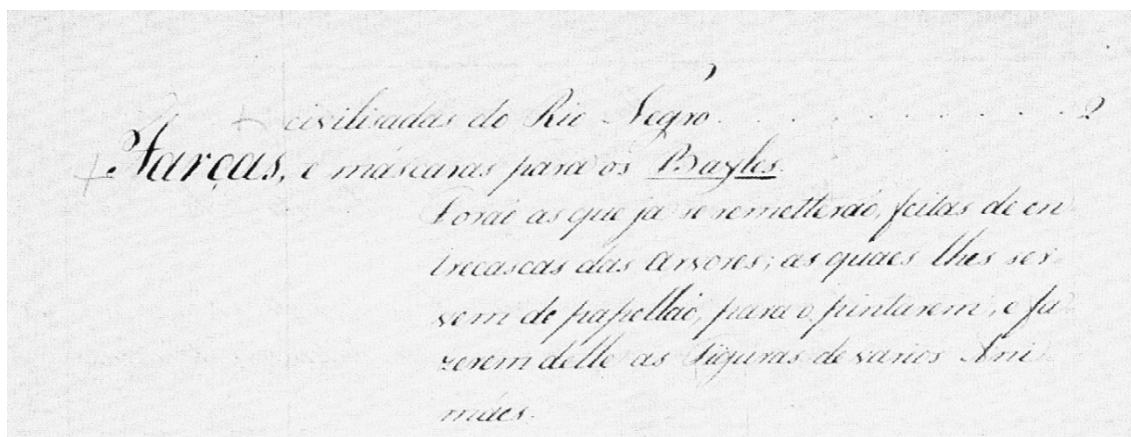 civilisadas do Rio Negro . . . . . . . . . . 2
Farças, e máscaras para os Bayles.
Foraõ as que ja se remetteraõ, feitas de en
trecascas das Arvores; as quaes lhes ser-
vem de papellaõ, para o pintarem, e fa-
zerem delle as Figuras de varios Ani-
máes.